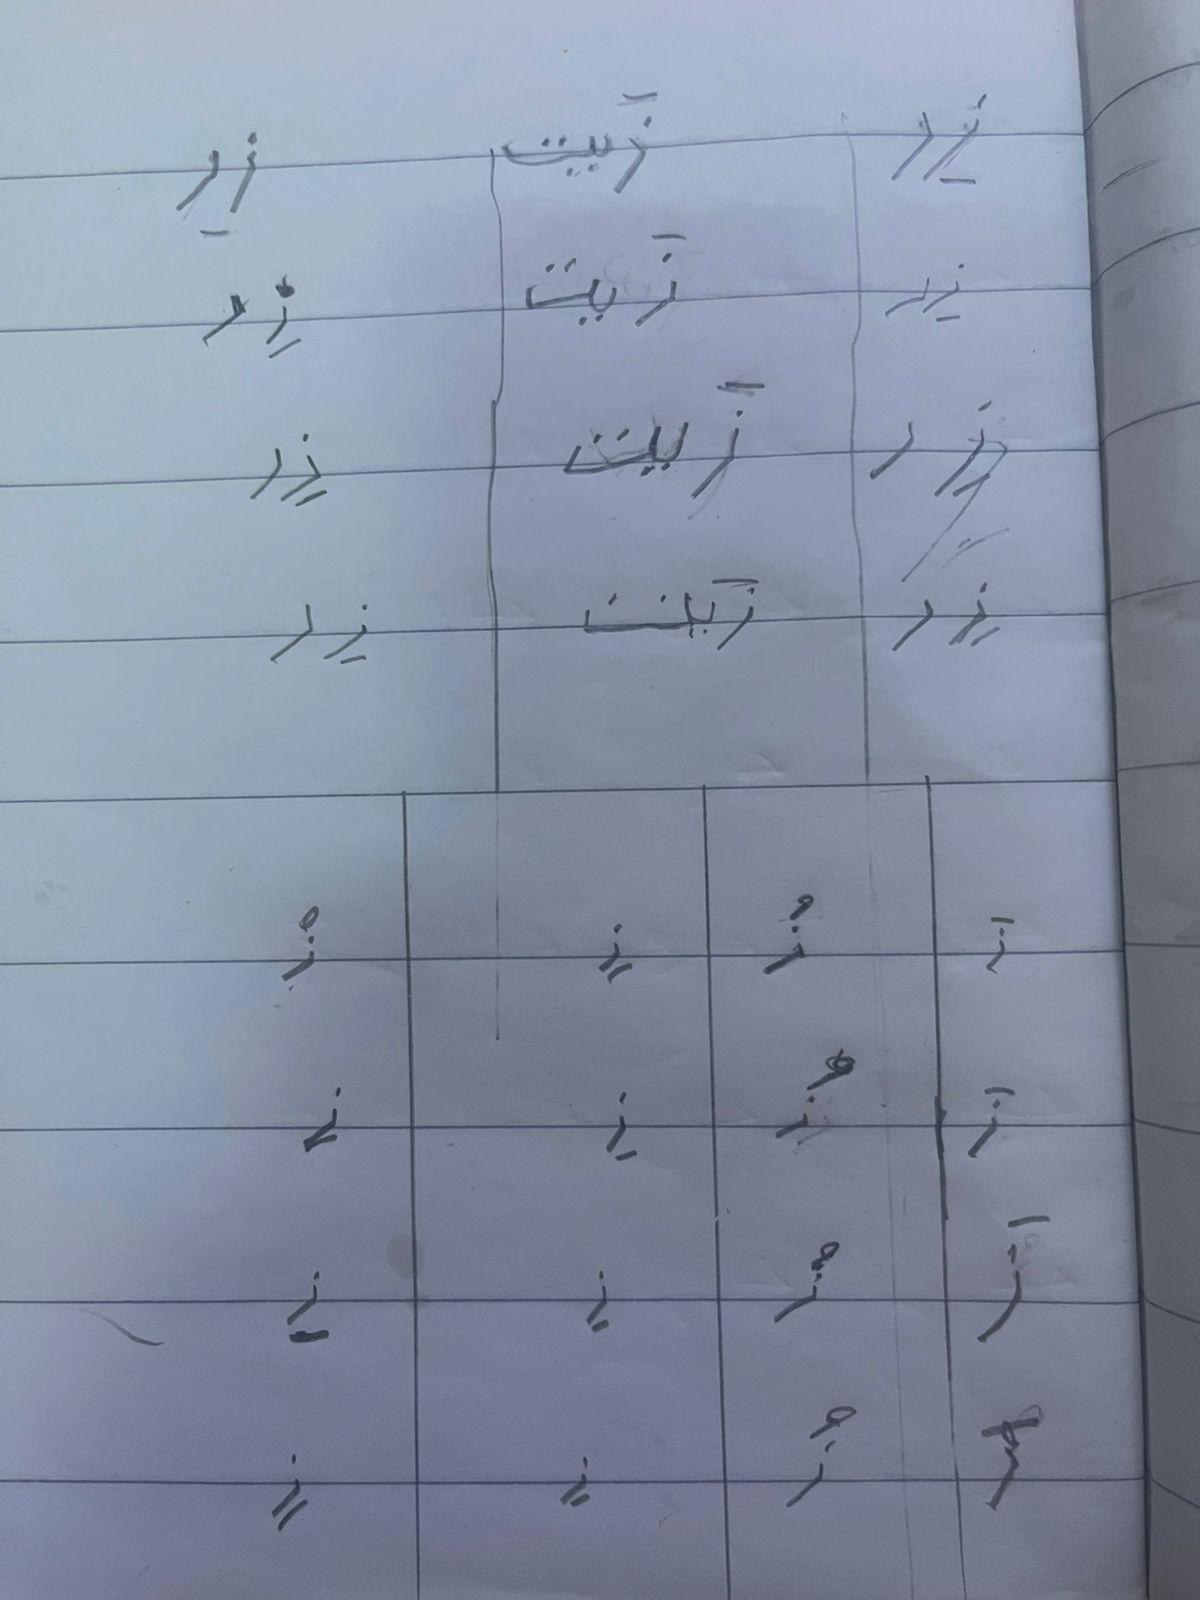 زِر زَيت زِر
زِر زَيت زِر
زِر زَيت زِر
زِر زَيت زِر
زَ زُ زِ زُ
زَ زُ زِ زِ
زَ زُ زِ زِ
زُ زِ زِ